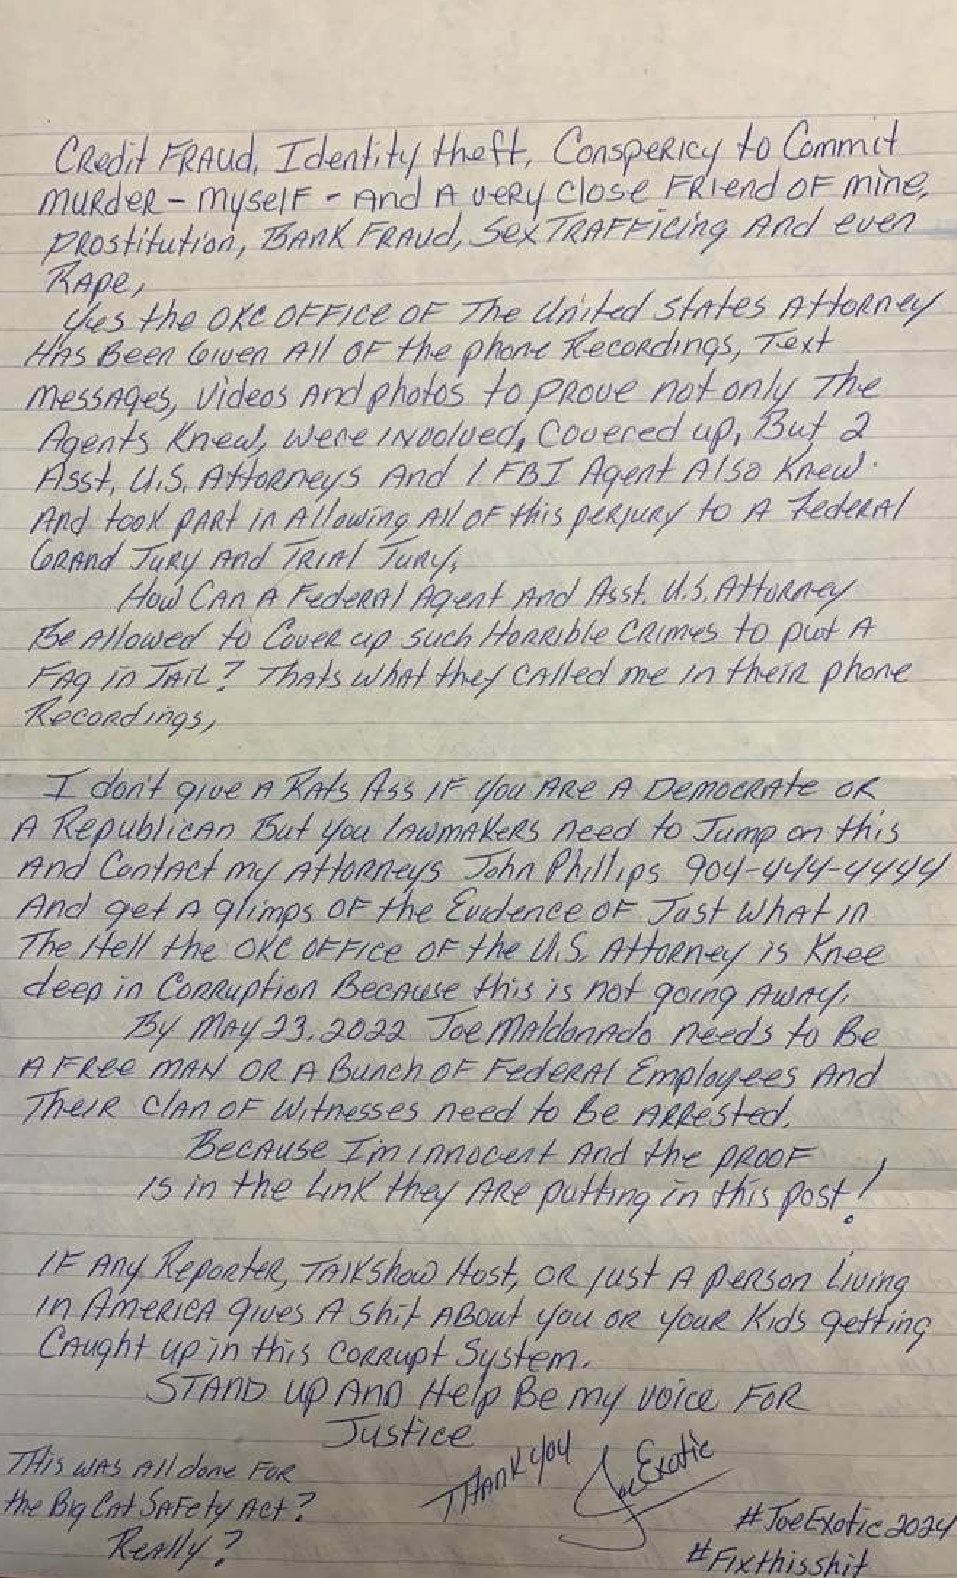 Credit Fraud, Identity theft, Conspericy to Commit
Murder - myself - And A very close Friend of mine,
prostitution, Bank Fraud, Sex Trafficing And even
Rape,
Yes the OKC office of The United States Attorney
Has Been Given All of the phone Recordings, Text
messages, videos And photos to prove not only The
Agents Knew, were involved, Covered up, But 2
Asst. U.S. Attorneys And 1 FBI Agent Also Knew
And took part in Allowing All of this perjury to A Federal
Grand Jury And Trial Jury.
How Can A Federal Agent And Asst. U.S. Attorney
Be Allowed to Cover up such Horrible Crimes to put A
Fag in Jail? Thats what they called me in their phone
Recordings,
I don't give A Rats Ass if you Are A Democrate or
A Republican But you lawmakers need to Jump on this
And Contact my Attorneys John Phillips 904-444-4444
And get A glimps of the Evidence of Just what in
The Hell the OKC office of the U.S. Attorney is Knee
deep in Corruption Because this is not going Away.
By May 23, 2022 Joe Maldonado needs to Be
A Free man or A Bunch of Federal Employees And
Their Clan of Witnesses need to be Arrested.
Because I'm innocent And the proof
is in the Link they Are putting in this post!
If Any Reporter, Talkshow Host, or just A person Living
in America gives A shit About you or your Kids getting
Caught up in this Corrupt System.
Stand up And Help Be my voice For
Justice
Thank you Joe Exotic
This was All done For
the Big Cat Safety Act?
Really?
#JoeExotic2024
#Fixthisshit